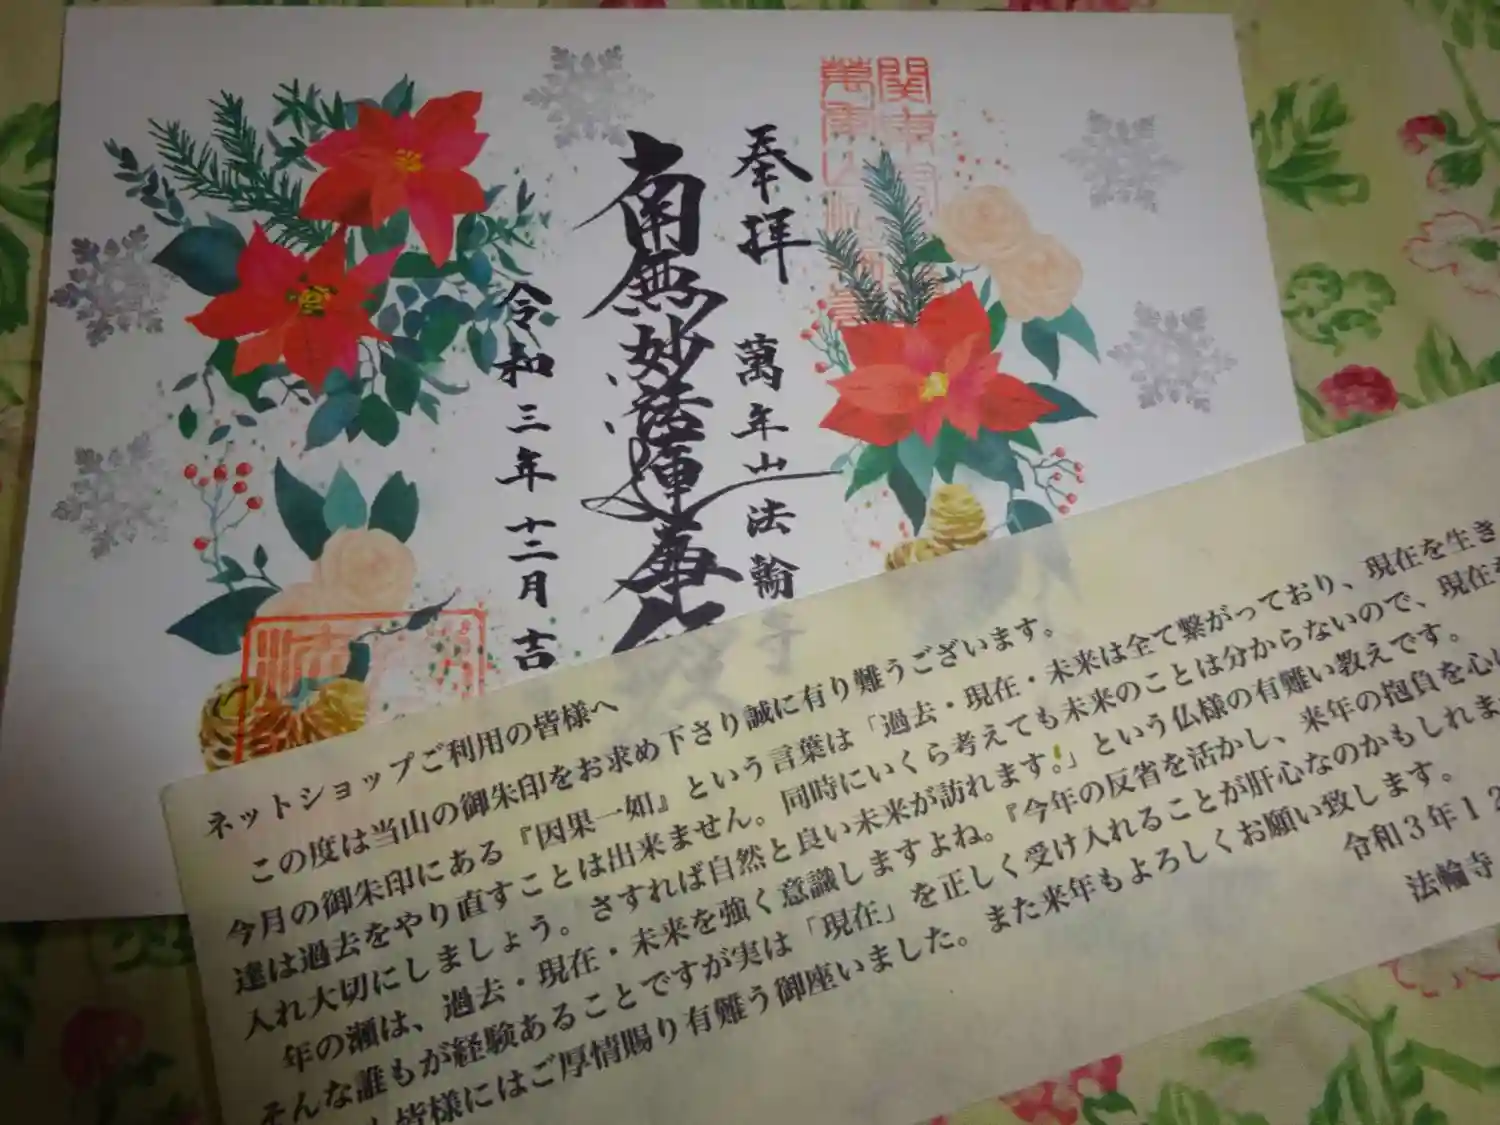 奉拝
萬年山法輪寺
南無妙法蓮華
令和三年十二月吉
ネットショップご利用の皆様へ
この度は当山の御朱印をお求め下さり誠に有り難うございます。
今月の御朱印にある『因果一如』という言葉は「過去・現在・未来は全て繋がっており、現在を生き
達は過去をやり直すことは出来ません。同時にいくら考えても未来のことは分からないので、現在を
入れ大切にしましょう。さすれば自然と良い未来が訪れます。」という仏様の有難い教えです。
年の瀬は、過去・現在・未来を強く意識しますよね。『今年の反省を活かし、来年の抱負を心に
そんな誰もが経験あることですが実は「現在」を正しく受け入れることが肝心なのかもしれま
皆様にはご厚情賜り有難う御座いました。また来年もよろしくお願い致します。
令和3年12
法輪寺